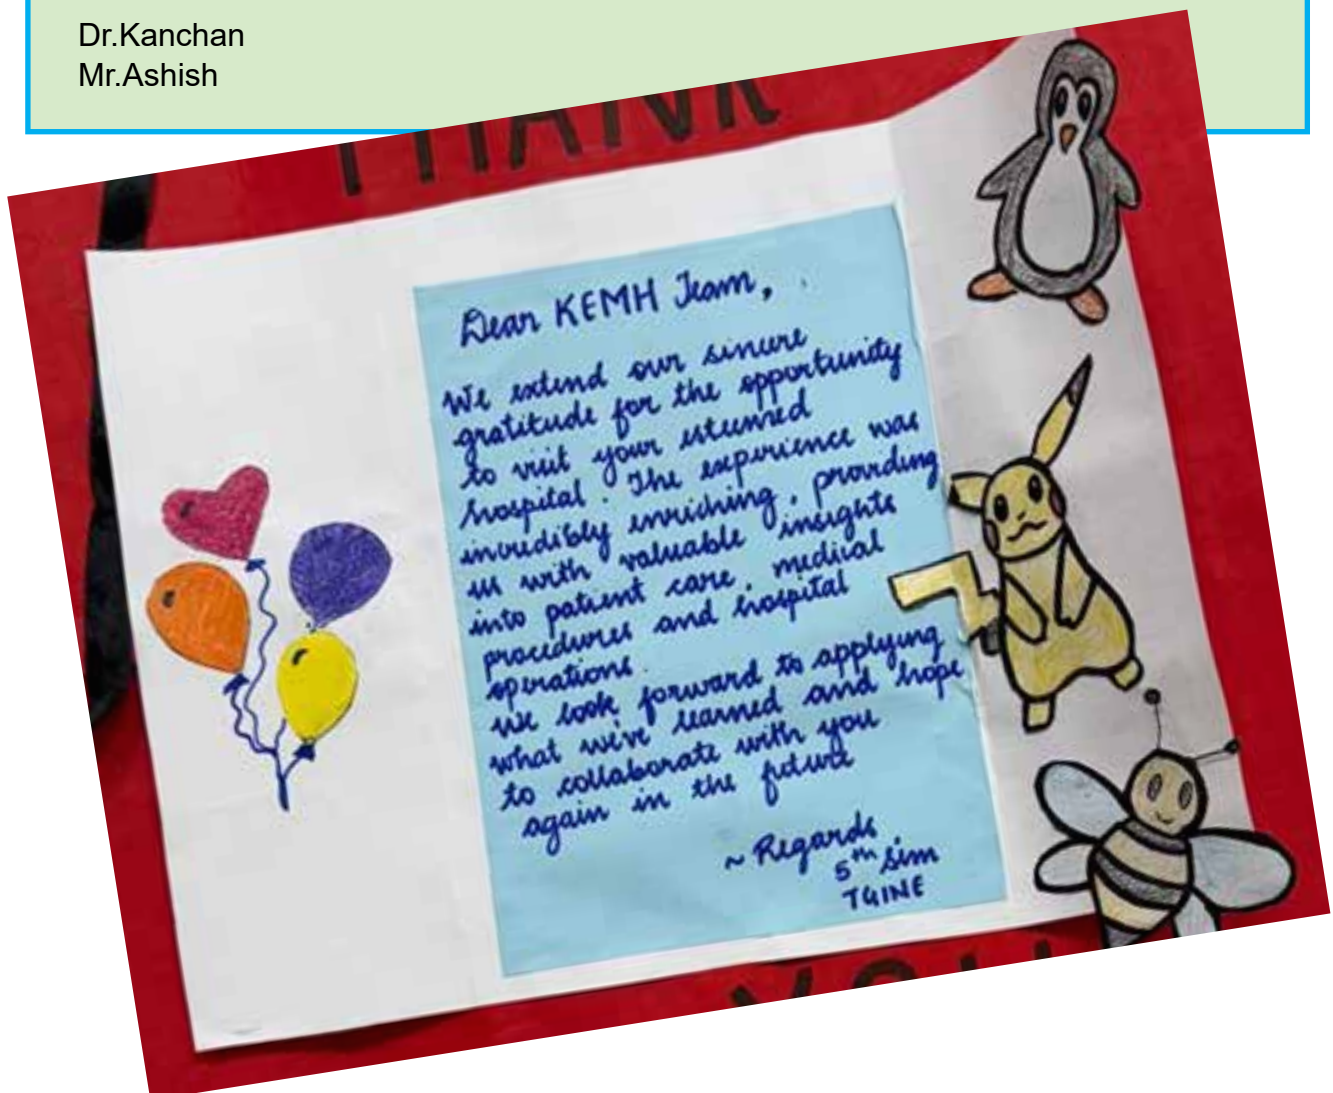 Dr.Kanchan
Mr.Ashish
THANK
Dear KEMH Team,
We extend our sincere
gratitude for the opportunity
to visit your esteemed
hospital. The experience was
incredibly enriching, providing
us with valuable insights
into patient care, medical
procedures and hospital
operations.
We look forward to applying
what we've learned and hope
to collaborate with you
again in the future
~ Regards
5th Sem
TGINE
YOU